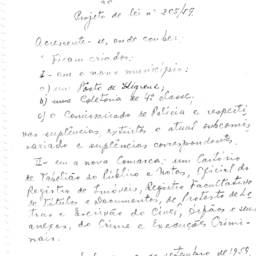 ao
Projeto de lei nº 205/59.
Acrescente-se, onde couber:
"Ficam criados:
I - em o novo município:
a) um Posto de Higiene,
b) uma Coletoria de 4ª classe,
c) o Comissariado de Polícia e respeti-
vas suplências, extinto o atual subcomis-
sariado e suplências correspondentes.
II - em a nova Comarca: um Cartório
de Tabelião do Público e Notas, Oficial do
Registro de Imóveis, Registro Facultativo
de Títulos e Documentos, de Protesto de Le-
tras e Escrivão do Cível, Órfãos e seus
anexos, do Crime e Execuções Crimi-
nais.
de setembro de 1959.